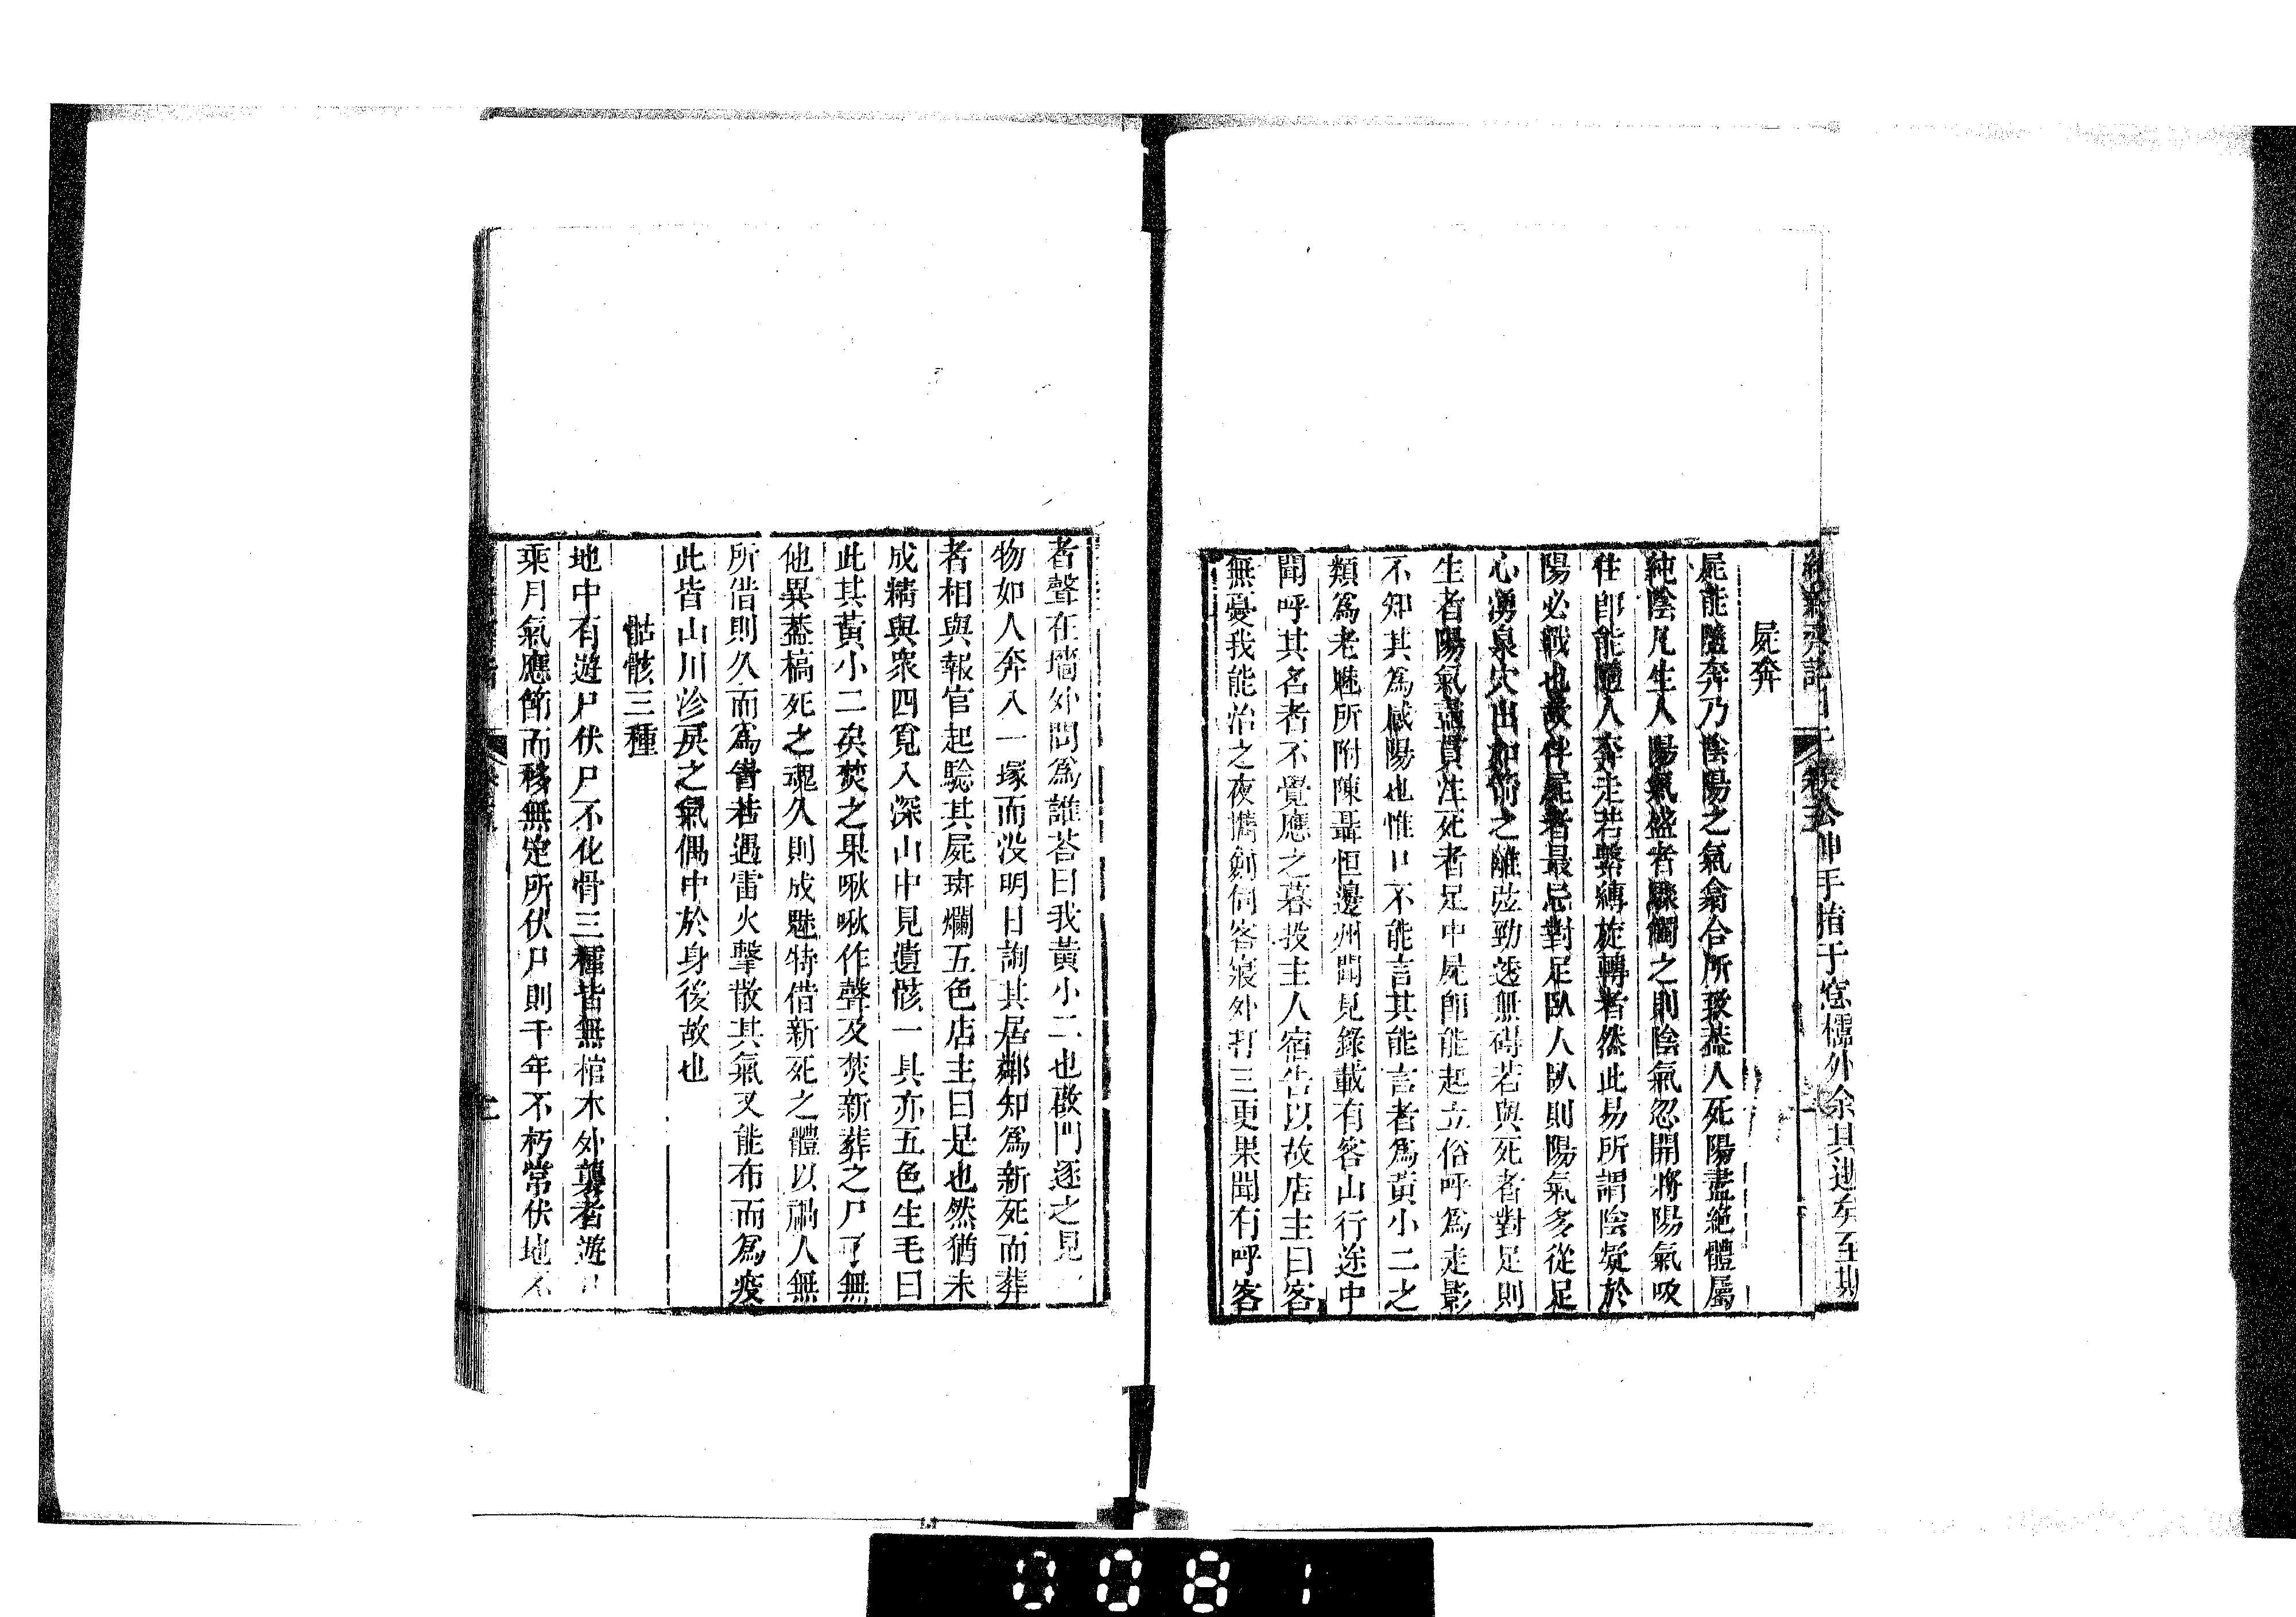 屍奔
屍能隨奔乃陰陽之氣翕合所致蓋人死陽盡絕體屬
純陰凡生人陽氣盛者驟觸之則陰氣忽開將陽氣吸
住卽能隨人奔走若繫縛旋轉者然此易所謂陰凝於
陽必戰也故伴屍者最忌對足臥人臥則陽氣多從足
心湧泉穴出如箭之離弦勁透無碍若與死者對足則
生者陽氣盡貫注死者足中屍卽能起立俗呼爲走影
不知其爲感陽也惟口不能言其能言者爲黃小二之
類爲老魅所附陳聶恒邊州聞見錄載有客山行途中
聞呼其名者不覺應之暮投主人宿告以故店主曰客
無憂我能治之夜擕劍伺客寢外打三更果聞有呼客
者聲在墻外問爲誰荅曰我黃小二也啟門逐之見一
物如人奔入一塚而没明日詢其居鄰知爲新死而葬
者相與報官起驗其屍斑爛五色店主曰是也然猶未
成精與衆四覓入深山中見遺骸一具亦五色生毛曰
此其黃小二矣焚之果啾啾作聲及焚新葬之尸了無
他異蓋槁死之魂久則成魅特借新死之體以禍人無
所借則久而爲眚巷遇雷火擊散其氣又能布而爲疫
此皆山川沴戾之氣偶中於身後故也
骷骸三種
地中有遊尸伏尸不化骨三種皆無棺木外襲者遊尸
乘月氣應節而移無定所伏尸則千年不朽常伏地不
卷五